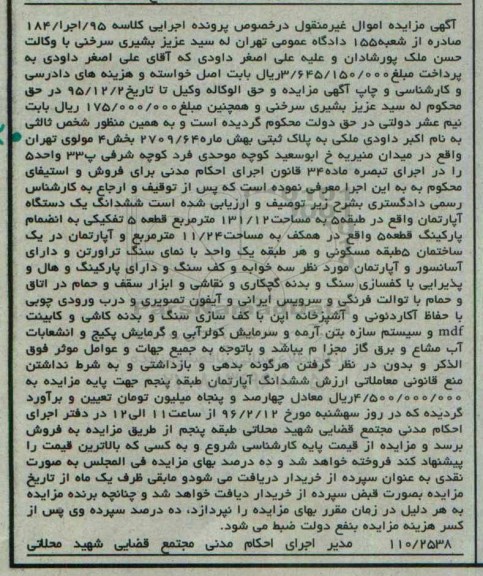 آگهی مزایده اموال غیرمنقول درخصوص پرونده اجرایی کلاسه ۹۵/اجرا/۱۸۴
صادره از شعبه۱۵۵ دادگاه عمومی تهران له سید عزیز بشیری سرخنی با وکالت
حسن ملک پورشادان و علیه علی اصغر داودی که آقای علی اصغر داودی به
پرداخت مبلغ۳/۶۴۵/۱۵۰/۰۰۰ریال بابت اصل خواسته و هزینه های دادرسی
و کارشناسی و چاپ آگهی مزایده و حق الوکاله وکیل تا تاریخ۹۵/۱۲/۲ در حق
محکوم له سید عزیز بشیری سرخنی و همچنین مبلغ۱۷۵/۰۰۰/۰۰۰ ریال بابت
نیم عشر دولتی در حق دولت محکوم گردیده است و به همین منظور شخص ثالثی
به نام اکبر داودی ملکی به پلاک ثبتی بهش ماره۲۷۰۹/۶۴ بخش۴ مولوی تهران
واقع در میدان منیریه خ ابوسعید کوچه موحدی فرد کوچه شرفی پ۳۳ واحد۵
را در اجرای تبصره ماده۳۴ قانون اجرای احکام مدنی برای فروش و استیفای
محکوم به به این اجرا معرفی نموده است که پس از توقیف و ارجاع به کارشناس
رسمی دادگستری بشرح زیر توصیف و ارزیابی شده است ششدانگ یک دستگاه
آپارتمان واقع در طبقه۵ به مساحت۱۳۱/۱۲ مترمربع قطعه ۵ تفکیکی به انضمام
پارکینگ قطعه۵ واقع در همکف به مساحت۱۱/۲۴ مترمربع و آپارتمان در یک
ساختمان ۵طبقه مسکونی و هر طبقه یک واحد با نمای سنگ تراورتن و دارای
آسانسور و آپارتمان مورد نظر سه خوابه و کف سنگ و دارای پارکینگ و هال و
پذیرایی با کفسازی سنگ و بدنه گچکاری و نقاشی و ابزار سقف و حمام در اتاق
و حمام با توالت فرنگی و سرویس ایرانی و آیفون تصویری و درب ورودی چوبی
با حفاظ آکاردئونی و آشپزخانه اپن با کف سازی سنگ و بدنه کاشی و کابینت
mdf و سیستم سازه بتن آرمه و سرمایش کولرآبی و گرمایش پکیج و انشعابات
آب مشاع و برق گاز مجزا م یباشد و باتوجه به جمیع جهات و عوامل موثر فوق
الذکر و بدون در نظر گرفتن هرگونه بدهی و بازداشتی و به شرط نداشتن
منع قانونی معاملاتی ارزش ششدانگ آپارتمان طبقه پنجم جهت پایه مزایده به
۴/۵۰۰/۰۰۰/۰۰۰ریال معادل چهارصد و پنجاه میلیون تومان تعیین و برآورد
گردیده که در روز سهشنبه مورخ ۹۶/۲/۱۲ از ساعت۱۱ الی۱۲ در دفتر اجرای
احکام مدنی مجتمع قضایی شهید محلاتی طبقه پنجم از طریق مزایده به فروش
برسد و مزایده از قیمت پایه کارشناسی شروع و به کسی که بالاترین قیمت را
پیشنهاد کند فروخته خواهد شد و ده درصد بهای مزایده فی المجلس به صورت
نقدی به عنوان سپرده از خریدار دریافت می شودو مابقی ظرف یک ماه از تاریخ
مزایده بصورت قبض سپرده از خریدار دیافت خواهد شد و چنانچه برنده مزایده
به هر دلیل در زمان مقرر بهای مزایده را نپردازد، ده درصد سپرده وی پس از
کسر هزینه مزایده بنفع دولت ضبط می شود.
۱۱۰/۲۵۳۸ مدیر اجرای احکام مدنی مجتمع قضایی شهید محلاتی